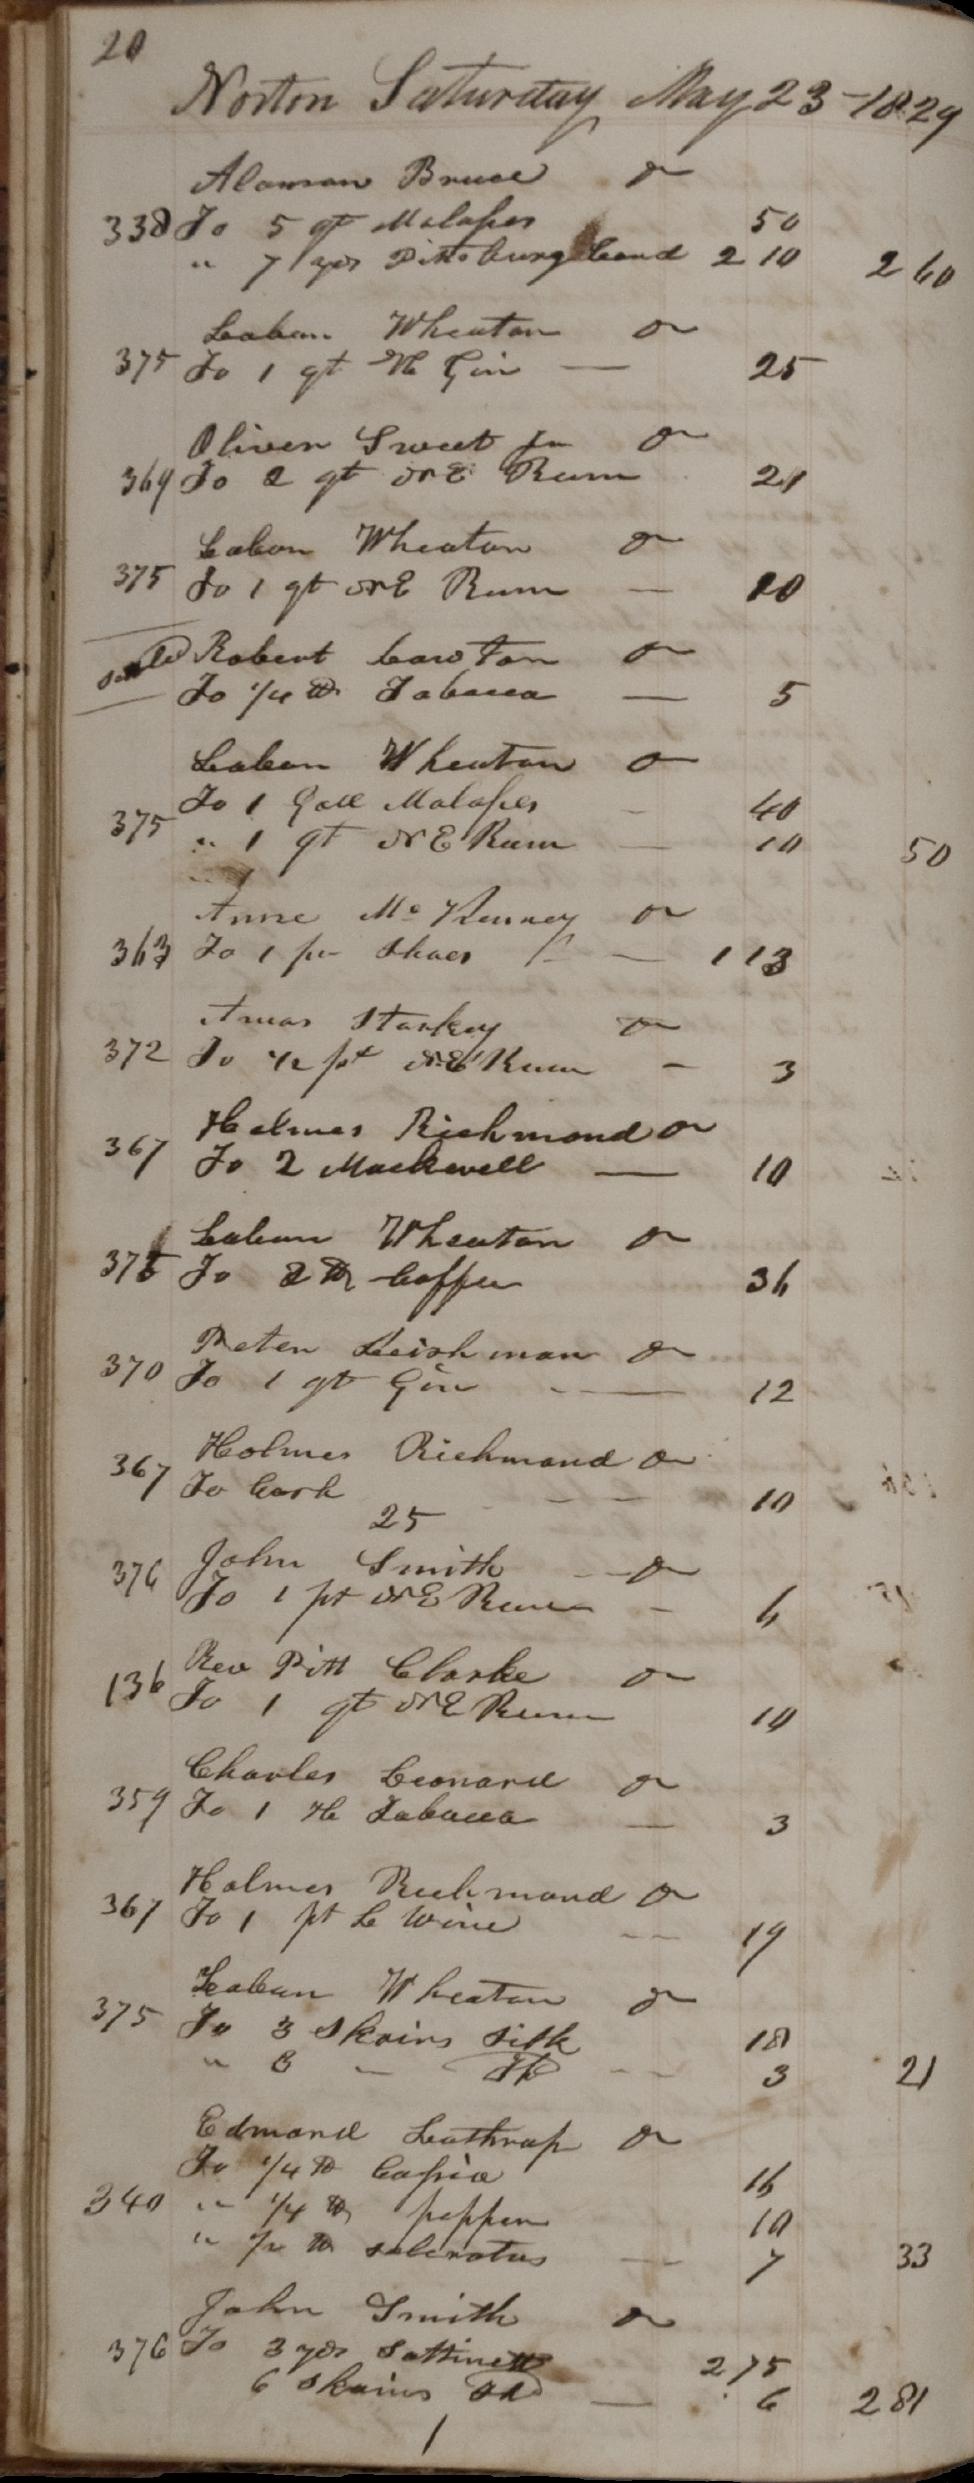 20
Norton Saturday May 23 - 1829
Alamson Bruce Dr
338 To 5 qt Molasses 50
" 7 yds Pittsburg Cord 2 10 2 60
Laban Wheaton Dr
375 To 1 qt H Gin — 25
Oliver Sweet Jr Dr
369 To 2 qt N E Rum 20
Laban Wheaton Dr
375 To 1 qt N E Rum — 10
Robert Cawton Dr
To 1/4 lb Tobacco — 5
Laban Wheaton Dr
To 1 Gall Molasses - 40
375
" 1 qt N E Rum — 10 50
Anne Mc Kenney Dr
363 To 1 pr Shoes — 1 13
Amos Starkey Dr
372 To 1/2 pt N E Rum - 3
Holmes Richmond Dr
367 To 2 Mackerell — 10
Laban Wheaton Dr
375 To 2 lb Coffee 36
Peter Leishman Dr
370 To 1 qt Gin — 12
Holmes Richmond Dr
367 To Cash - - 10
25
John Smith Dr
376 To 1 pt N E Rum - 6
Rev Pitt Clarke Dr
136 To 1 qt N E Rum 10
Charles Leonard Dr
359 To 1 H Tobacco — 3
Holmes Richmond Dr
367 To 1 pt L Wine - - 19
Laban Wheaton Dr
375 To 3 Skains Silk 18
" 3 " Th - - 3 21
Edmond Lathrop Dr
To 1/4 lb Cassia 16
340 " 1/4 lb pepper 10
" 1/2 lb saleratus — 7 33
John Smith Dr
376 To 3 yds Sattinett 2 75
6 Skains Thd — 6 2 81
1